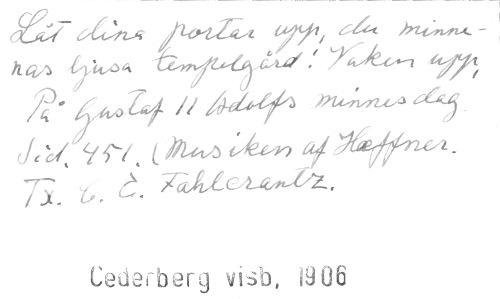 Låt dina portar upp, du minne-
nas ljusa tempelgård! Vaken upp,
På Gustaf II Adolfs minnesdag
Sid. 451. (Musiken af Hæffner.
Tx. C. E. Fahlcrantz.
Cederberg visb, 1906